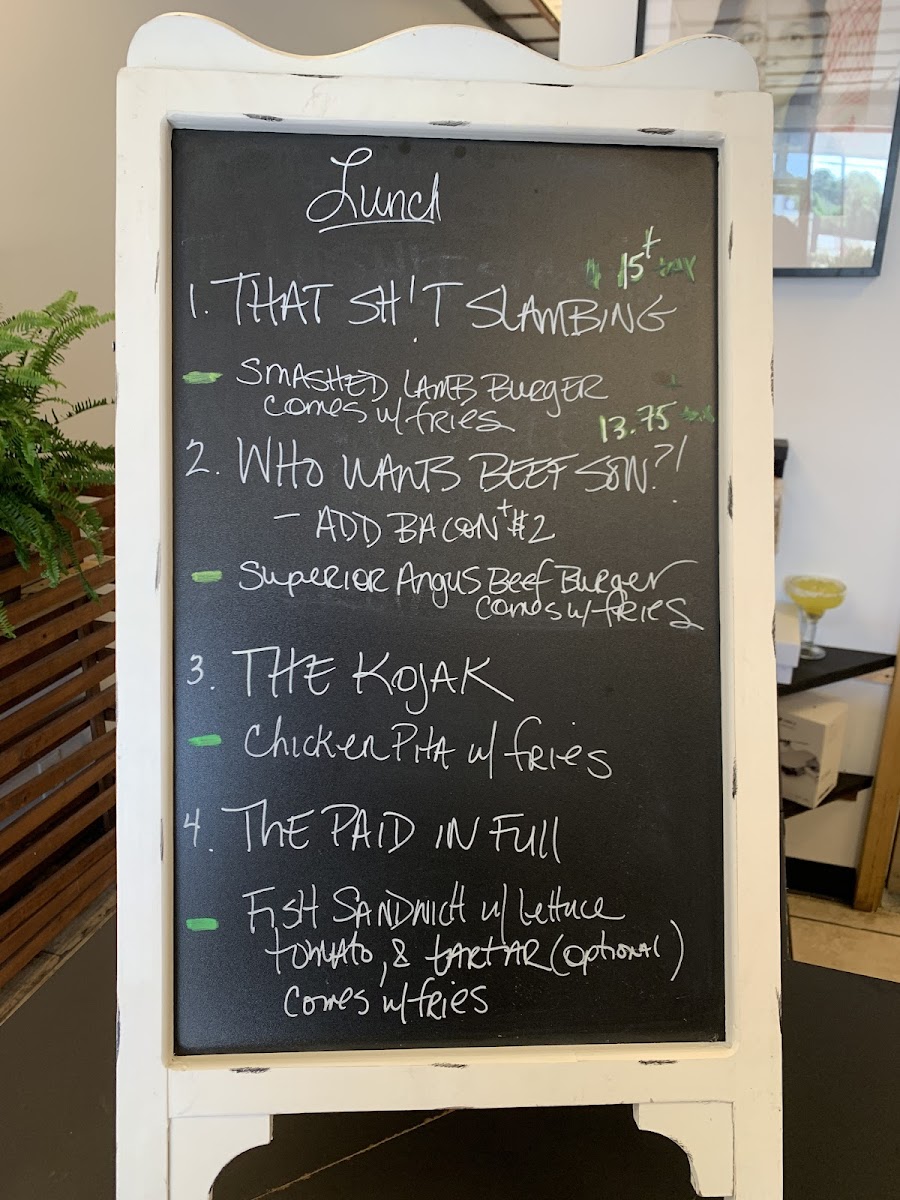 Lunch
$ 15+ tax
1. THAT SH!T SLAMBING
SMASHED LAMB BURGER
comes w/ fries
13.75
2. WHO WANTS BEEF SON?!
- ADD BACON + $2
Superior Angus Beef Burger
comes w/ fries
3. THE KOJAK
Chicken Pita w/ fries
4. The PAID IN FULL
FISH SANDWICH w/ lettuce
tomato, & TARTAR (optional)
comes w/ fries